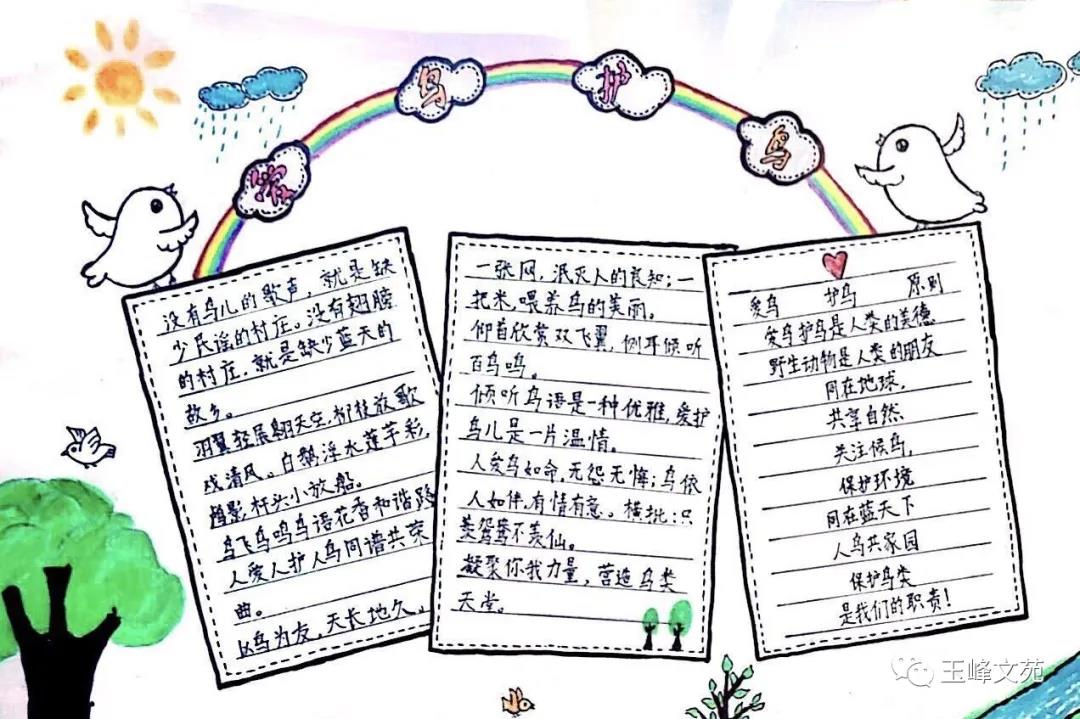 爱鸟护鸟
没有鸟儿的歌声，就是缺
少民谣的村庄。没有翅膀
的村庄，就是缺少蓝天的
故乡。
羽翼轻展翱天空，柳枝放歌
戏清风。白鹅浮水莲芋彩，
鹤影杆头小放船。
鸟飞鸟鸣鸟语花香和谐路
人爱人护人鸟同谱共荣
曲。
以鸟为友，天长地久。
一张网，泯灭人的良知；一
把米，喂养鸟的美丽。
仰首欣赏双飞翼，侧耳倾听
百鸟鸣。
倾听鸟语是一种优雅，爱护
鸟儿是一片温情。
人爱鸟如命，无怨无悔；鸟依
人如伴，有情有意。横批：只
羡鸳鸯不羡仙。
凝聚你我力量，营造鸟类
天堂。
爱鸟 护鸟 原则
爱鸟护鸟是人类的美德
野生动物是人类的朋友
同在地球，
共享自然
关注候鸟，
保护环境
同在蓝天下
人鸟共家园
保护鸟类
是我们的职责！
玉峰文苑